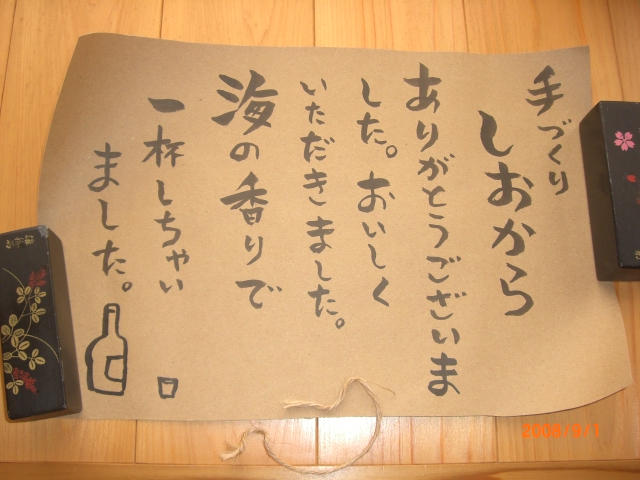 手づくり
しおから
ありがとうございま
した。おいしく
いただきました。
海の香りで
一杯しちゃい
ました。
2008/9/1